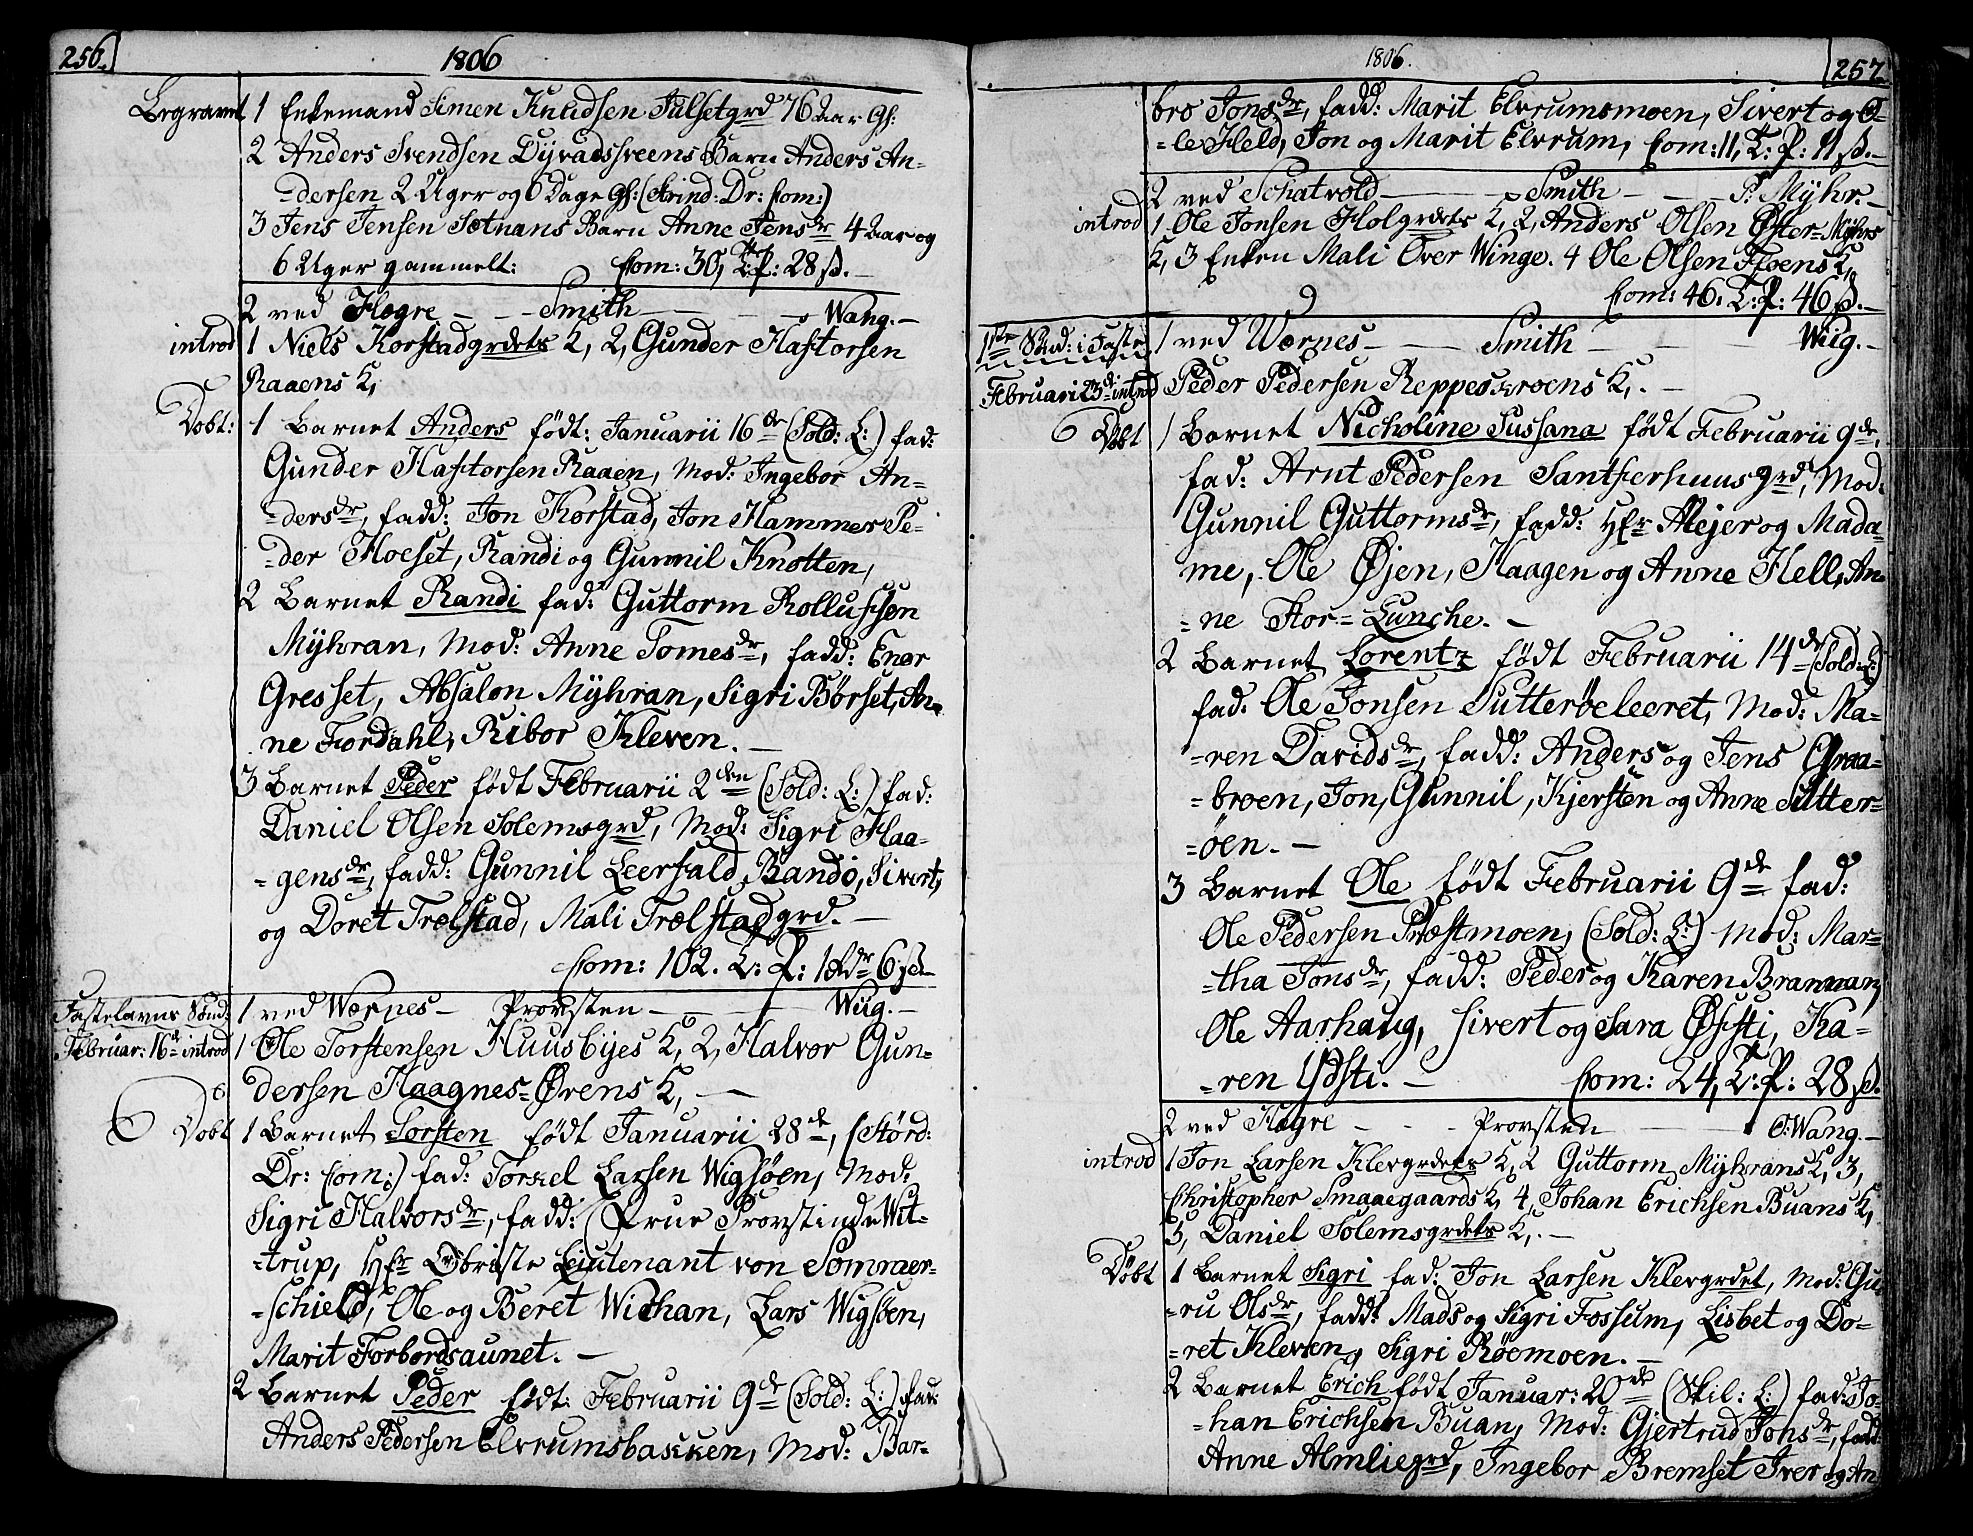 256.
1806
Begravet 1 Enkemand Simen Knudsen Julsetgrd 76 Aar Gl:
2 Anders Svendsen Dyvadssveens Barn Anders An-
-dersen 2 Uger og 6 Dage Gl: (Strind: Dr: Com:)
3 Jens Jensen Sætnans Barn Anne Jensdr 4 Aar og
6 Uger gammelt: Com: 30, T: P: 28 s.
2 ved Hegre - - - Smith - - - Wang.
introd 1 Niels Korstadgrdets K, 2, Gunder Haftorsen
Raaens K,
Døbt: 1 Barnet Anders født: Januarii 16de (Sold: L:) fad:
Gunder Haftorsen Raaen, Mod: Ingebor An-
-dersdr, fadd: Jon Korstad, Jon Hammer Pe-
-der Hoeset, Randi og Gunnil Knotten,
2 Barnet Randi fad: Guttorm Rollufssøn
Mÿhran, Mod: Anne Tomesdr, fadd: Enor
Gresset, Absalon Mÿhran, Sigri Børset, An-
ne Fordahl, Ribor Kleven.
3 Barnet Peder født Februarii 2den (Sold: L:) fad:
Daniel Olsen Solemsgrd, Mod: Sigri Haa-
-gensdr, fadd: Gunnil Leerfald, Rando, Sivert,
og Doret Trælstad, Mali Trælstadgrd.
Com: 102. T: P: 1 Rdr 6 s.
Fastelavns Sønd: 1 ved Wærnes - Provsten - Wiig.
Februar: 16de introd 1 Ole Torstensen Huusbÿes K, 2, Halvor Gun-
dersen Haagnes-Ørens K,
Døbt 1 Barnet Torsten født Januarii 28de, (Størd:
Dr: Com:) fad: Torkel Larsen Wigsøen, Mod:
Sigri Halvorsdr, fadd: (Frue Provstinde Wit-
-trup, Hr Obriste Lieutenant von Somraer-
-schield, Ole og Beret Wichan, Lars Wigsøen,
Marit Forbordsaunet.
2 Barnet Peder født: Februarii 9de (Sold: L:) fad:
Anders Pedersen Elvrumsbakken, Mod: Bar-
1806.
257
bro Jonsdr, fadd: Marit Elvrumsmoen, Sivert og O-
-le Held, Jon og Marit Elvrum, Com: 11, T: P: 11 s.
2 ved Schatvold - Smith - P: Mÿhr.
introd 1 Ole Jonsen Holgrdets K, 2, Anders Olsen Øster-Mÿhrs
K, 3 Enken Mali Over Winge. 4 Ole Olsen Moens K,
Com: 46. T: P: 46 s.
1ste Sønd: i Faste 1 ved Wærnes - Smith - Wiig.
Februarii 23di introd Peder Pedersen Reppeskroens K,
Døbt 1 Barnet Nicholine Sussana født Februarii 9de,
fad: Arnt Pedersen Santferhuusgrd, Mod:
Gunnil Guttormsdr, fadd: Hr Mejer og Mada-
me, Ole Øjen, Haagen og Anne Hell, An-
-ne Stor-Lunche.
2 Barnet Lorentz født Februarii 14de (Sold: L:)
fad: Ole Jonsen Sutterøeleeret, Mod: Ma-
-ren Davidsdr, fadd: Anders og Jens Graa-
-broen, Jon, Gunnil, Kjersten og Anne Sutter-
-øen.
3 Barnet Ole født Februarii 9de fad:
Ole Pedersen Præstmoen, (Sold: L:) Mod: Mar-
-tha Jonsdr, fadd: Peder og Karen Branman,
Ole Aarhaug, Sivert og Sara Øfsti, Ka-
-ren Ydsti. Com: 24, T: P: 28 s.
2 ved Hegre - - - Provsten - O: Wang.
introd 1 Jon Larsen Klevgrdets K, 2 Guttorm Mÿhrans K, 3,
Christopher Smaaegaards K, 4, Johan Erichsen Buans K,
5, Daniel Solemsgrdets K,
Døbt 1 Barnet Sigri fad: Jon Larsen Klevgrdet, Mod: Gu-
-ru Olsdr, fadd: Mads og Sigri Fossum, Lisbet og Do-
-ret Kleven, Sigri Røemoen.
2 Barnet Erich født Januar: 20de (Skil: L:) fad: Jo-
-han Erichsen Buan, Mod: Gjertrud Johsdr, fadd:
Anne Almliegrd, Ingebor Bremset Iver og An